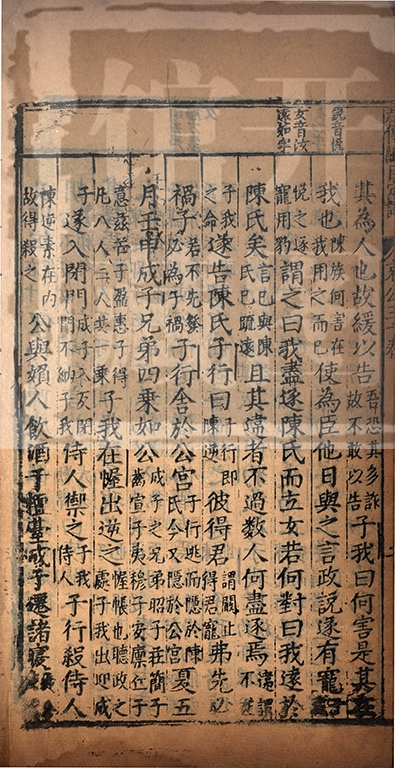 說音悅
女音汝
遠如字
其為人也故緩以告吾恐其多詐故不敢以告子我曰何害是其在
我也陳族何害在我用之而已使為臣他日與之言政說遂有寵
悅之遂寵用豹謂之曰我盡逐陳氏而立女若何對曰我遠於
陳氏矣言已與陳氏已疏遠且其違者不過數人何盡逐焉違謂不
子我之命遂告陳氏子行曰子行即陳逆彼得君謂闞止得君寵弗先必
禍子若不先發必為子禍子行舍於公宮子行逃而隱於陳氏今又隱於公宮夏五
月壬申成子兄弟四乘如公成子之兄弟昭子莊簡子齒宣子夷穆子安廩丘子
意茲芒子盈惠子得凡八人二人共一乘子我在幄出逆之幄帳也聽政之處子我出迎成
子遂入閉門成子入反閉門不納子我侍人禦之子我侍人子行殺侍人
陳逆素在內故得殺之公與婦人飲酒于檀臺成子遷諸寢